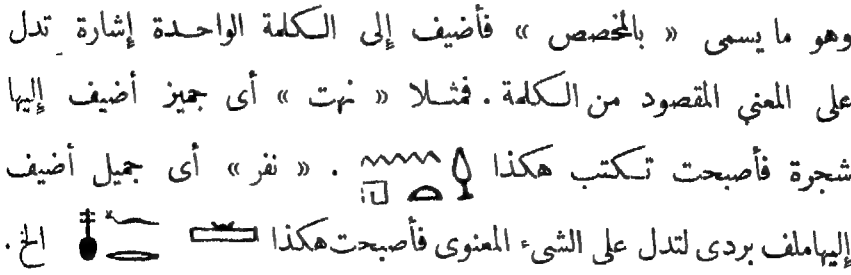 وهو ما يسمى « بالمخصص » فأضيف إلى الكلمة الواحدة إشارة تدل
على المعني المقصود من الكلمة . فمثلا « نهت » أى جميز أضيف إليها
شجرة فأصبحت تكتب هكذا 𓈖𓉔𓏏𓆭 . « نفر » أى جميل أضيف
إليها ملف بردى لتدل على الشىء المعنوى فأصبحت هكذا 𓄤𓆑𓂋𓏛 الخ .